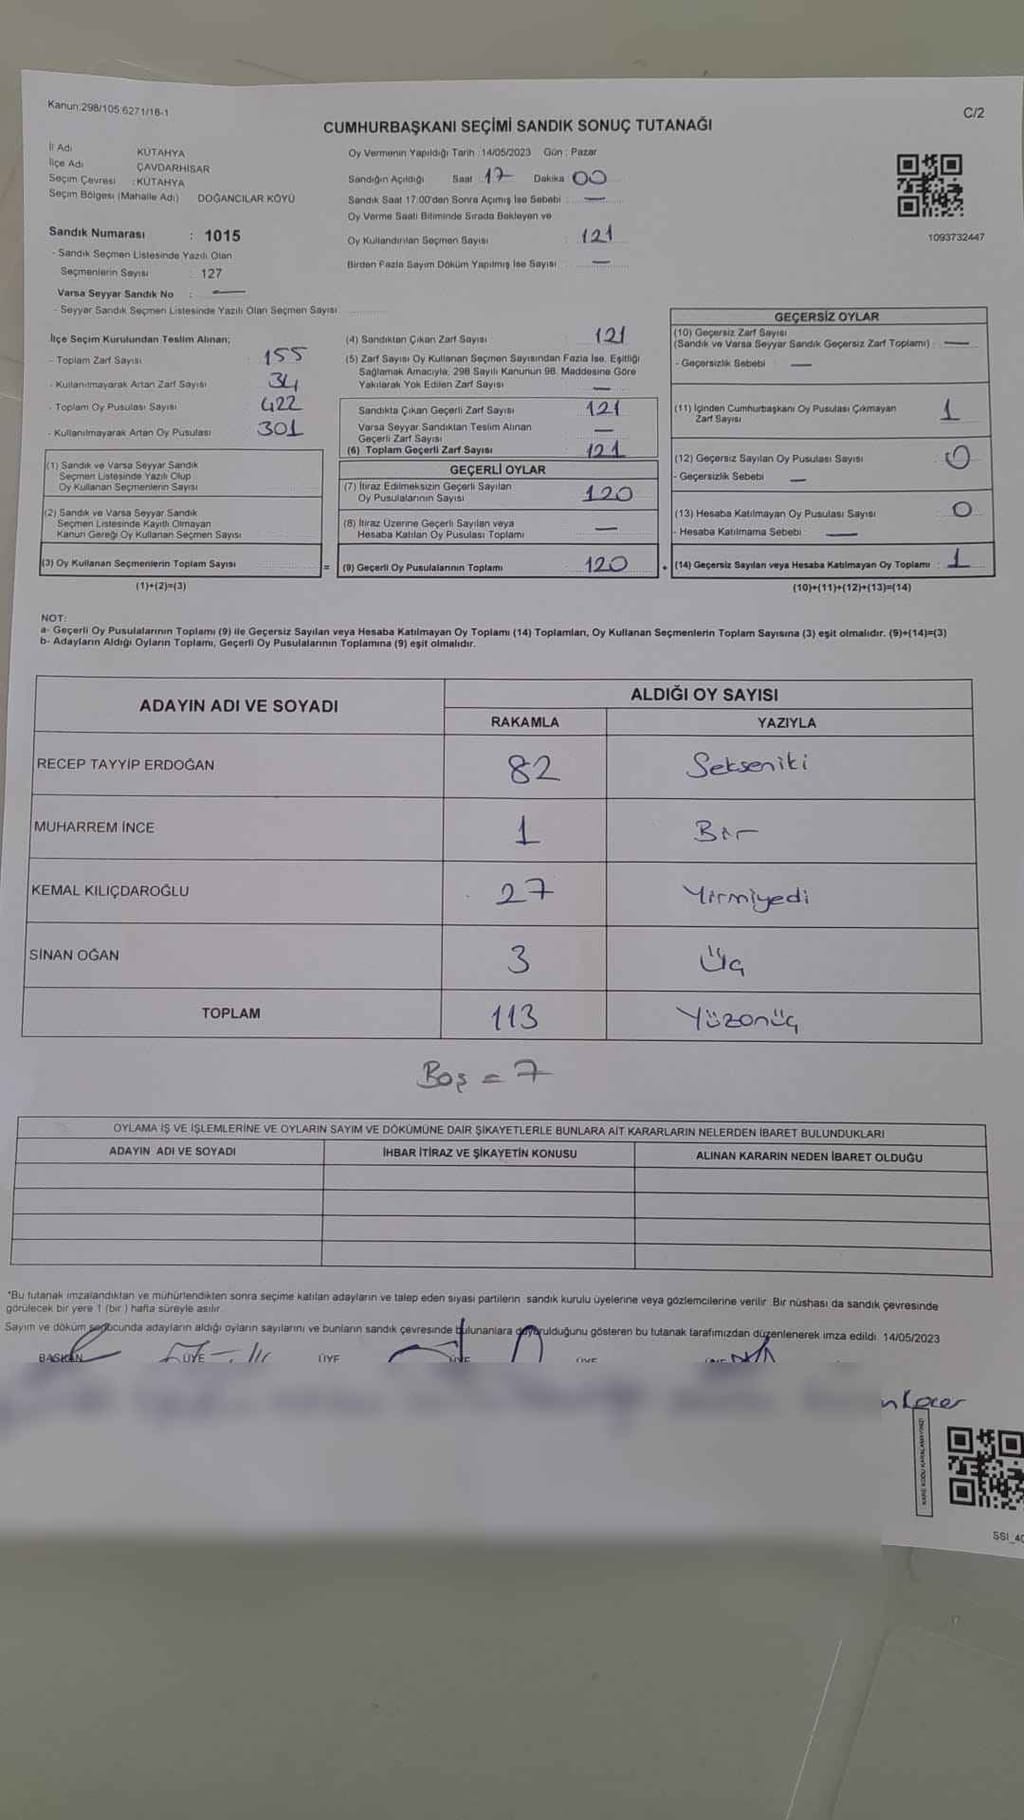 Kanun:298/105 6271/16-1
C/2
CUMHURBAŞKANI SEÇİMİ SANDIK SONUÇ TUTANAĞI
İl Adı KÜTAHYA
İlçe Adı ÇAVDARHİSAR
Seçim Çevresi : KÜTAHYA
Seçim Bölgesi (Mahalle Adı) DOĞANCILAR KÖYÜ
Sandık Numarası : 1015
- Sandık Seçmen Listesinde Yazılı Olan
Seçmenlerin Sayısı 127
Varsa Seyyar Sandık No : —
- Seyyar Sandık Seçmen Listesinde Yazılı Olan Seçmen Sayısı
Oy Vermenin Yapıldığı Tarih : 14/05/2023 Gün : Pazar
Sandığın Açıldığı Saat : 17 Dakika 00
Sandık Saat 17:00'den Sonra Açımış İse Sebebi : —
Oy Verme Saati Bitiminde Sırada Bekleyen ve
Oy Kullandırılan Seçmen Sayısı : 121
Birden Fazla Sayım Döküm Yapılmış İse Sayısı : —
1093732447
İlçe Seçim Kurulundan Teslim Alınan;
- Toplam Zarf Sayısı 155
- Kullanılmayarak Artan Zarf Sayısı 34
- Toplam Oy Pusulası Sayısı 422
- Kullanılmayarak Artan Oy Pusulası 301
(1) Sandık ve Varsa Seyyar Sandık
Seçmen Listesinde Yazılı Olup
Oy Kullanan Seçmenlerin Sayısı
(2) Sandık ve Varsa Seyyar Sandık
Seçmen Listesinde Kayıtlı Olmayan
Kanun Gereği Oy Kullanan Seçmen Sayısı
(3) Oy Kullanan Seçmenlerin Toplam Sayısı
(1)+(2)=(3)
(4) Sandıktan Çıkan Zarf Sayısı 121
(5) Zarf Sayısı Oy Kullanan Seçmen Sayısından Fazla İse, Eşitliği
Sağlamak Amacıyla, 298 Sayılı Kanunun 98. Maddesine Göre
Yakılarak Yok Edilen Zarf Sayısı —
Sandıkta Çıkan Geçerli Zarf Sayısı 121
Varsa Seyyar Sandıktan Teslim Alınan
Geçerli Zarf Sayısı —
(6) Toplam Geçerli Zarf Sayısı 121
GEÇERLİ OYLAR
(7) İtiraz Edilmeksizin Geçerli Sayılan
Oy Pusulalarının Sayısı 120
(8) İtiraz Üzerine Geçerli Sayılan veya
Hesaba Katılan Oy Pusulası Toplamı —
= (9) Geçerli Oy Pusulalarının Toplamı 120
GEÇERSİZ OYLAR
(10) Geçersiz Zarf Sayısı
(Sandık ve Varsa Seyyar Sandık Geçersiz Zarf Toplamı) : —
- Geçersizlik Sebebi : —
(11) İçinden Cumhurbaşkanı Oy Pusulası Çıkmayan
Zarf Sayısı 1
(12) Geçersiz Sayılan Oy Pusulası Sayısı 0
- Geçersizlik Sebebi —
(13) Hesaba Katılmayan Oy Pusulası Sayısı 0
- Hesaba Katılmama Sebebi : —
+ (14) Geçersiz Sayılan veya Hesaba Katılmayan Oy Toplamı : 1
(10)+(11)+(12)+(13)=(14)
NOT:
a- Geçerli Oy Pusulalarının Toplamı (9) ile Geçersiz Sayılan veya Hesaba Katılmayan Oy Toplamı (14) Toplamları, Oy Kullanan Seçmenlerin Toplam Sayısına (3) eşit olmalıdır. (9)+(14)=(3)
b- Adayların Aldığı Oyların Toplamı, Geçerli Oy Pusulalarının Toplamına (9) eşit olmalıdır.
ADAYIN ADI VE SOYADI ALDIĞI OY SAYISI
RAKAMLA YAZIYLA
RECEP TAYYİP ERDOĞAN 82 Sekseniki
MUHARREM İNCE 1 Bir
KEMAL KILIÇDAROĞLU 27 Yirmiyedi
SİNAN OĞAN 3 Üç
TOPLAM 113 Yüzonüç
Boş = 7
OYLAMA İŞ VE İŞLEMLERİNE VE OYLARIN SAYIM VE DÖKÜMÜNE DAİR ŞİKAYETLERLE BUNLARA AİT KARARLARIN NELERDEN İBARET BULUNDUKLARI
ADAYIN ADI VE SOYADI İHBAR İTİRAZ VE ŞİKAYETİN KONUSU ALINAN KARARIN NEDEN İBARET OLDUĞU
"Bu tutanak imzalandıktan ve mühürlendikten sonra seçime katılan adayların ve talep eden siyasi partilerin sandık kurulu üyelerine veya gözlemcilerine verilir. Bir nüshası da sandık çevresinde
görülecek bir yere 1 (bir ) hafta süreyle asılır.
Sayım ve döküm sonucunda adayların aldığı oyların sayılarını ve bunların sandık çevresinde bulunanlara duyurulduğunu gösteren bu tutanak tarafımızdan düzenlenerek imza edildi. 14/05/2023
BAŞKAN ÜYE ÜYE ÜYE ÜYE
KARE KODU KARALAMAYINIZ!